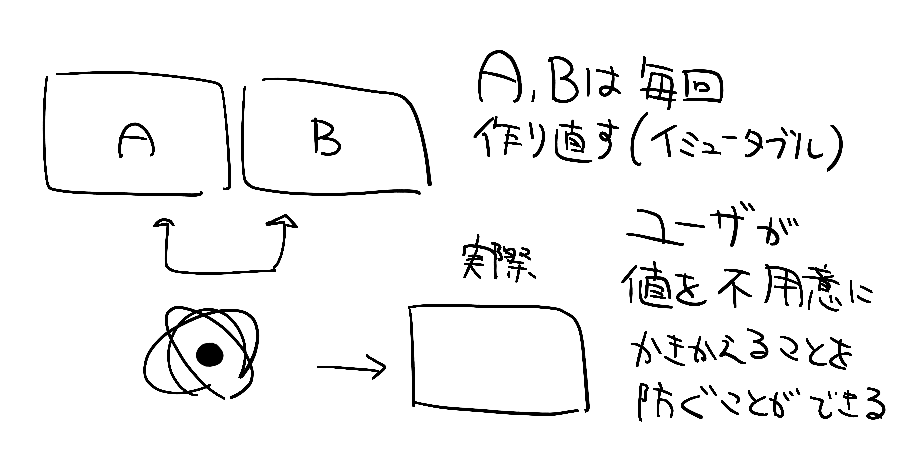 A
B
A,Bは毎回
作り直す(イミュータブル)
実際
ユーザが
値を不用意に
かきかえることを
防ぐことができる